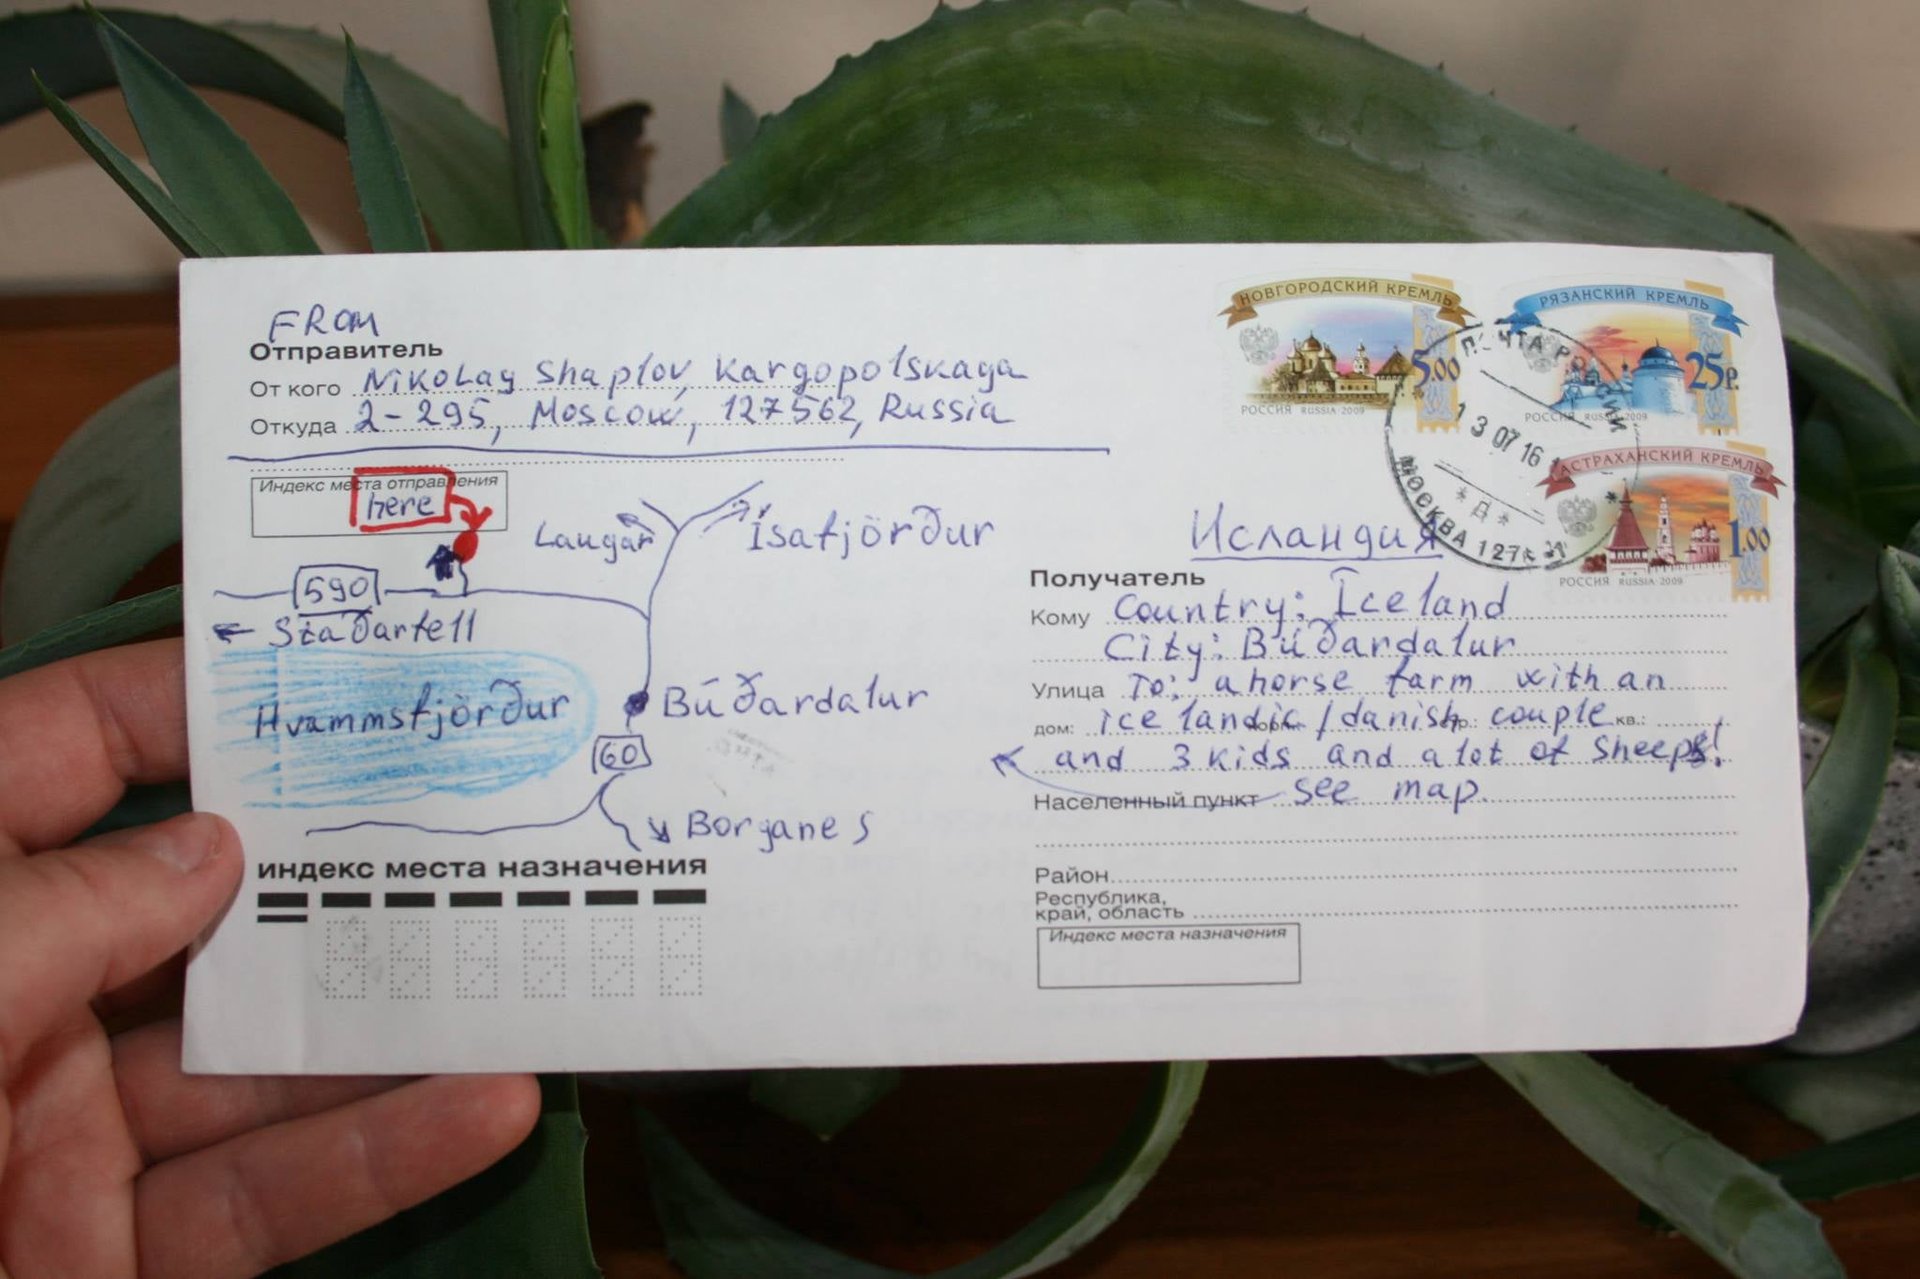 FROM
Отправитель
От кого Nikolay Shaplov, Kargopolskaya
Откуда 2-295, Moscow, 127562, Russia
НОВГОРОДСКИЙ КРЕМЛЬ
5.00
РОССИЯ RUSSIA 2009
РЯЗАНСКИЙ КРЕМЛЬ
25р.
РОССИЯ RUSSIA 2009
АСТРАХАНСКИЙ КРЕМЛЬ
1.00
РОССИЯ RUSSIA 2009
ПОЧТА РОССИИ
13 07 16
*Д*
МОСКВА 127
Индекс места отправления
here
Laugar
Ísafjörður
590
Staðarfell
Hvammsfjörður
Búðardalur
60
Borganes
индекс места назначения
Исландия
Получатель
Кому Country: Iceland
City: Búðardalur
Улица To: a horse farm with an
дом: корп. стр.: кв.: icelandic/danish couple
and 3 kids and a lot of sheeps!
Населенный пункт see map.
Район
Республика,
край, область
Индекс места назначения